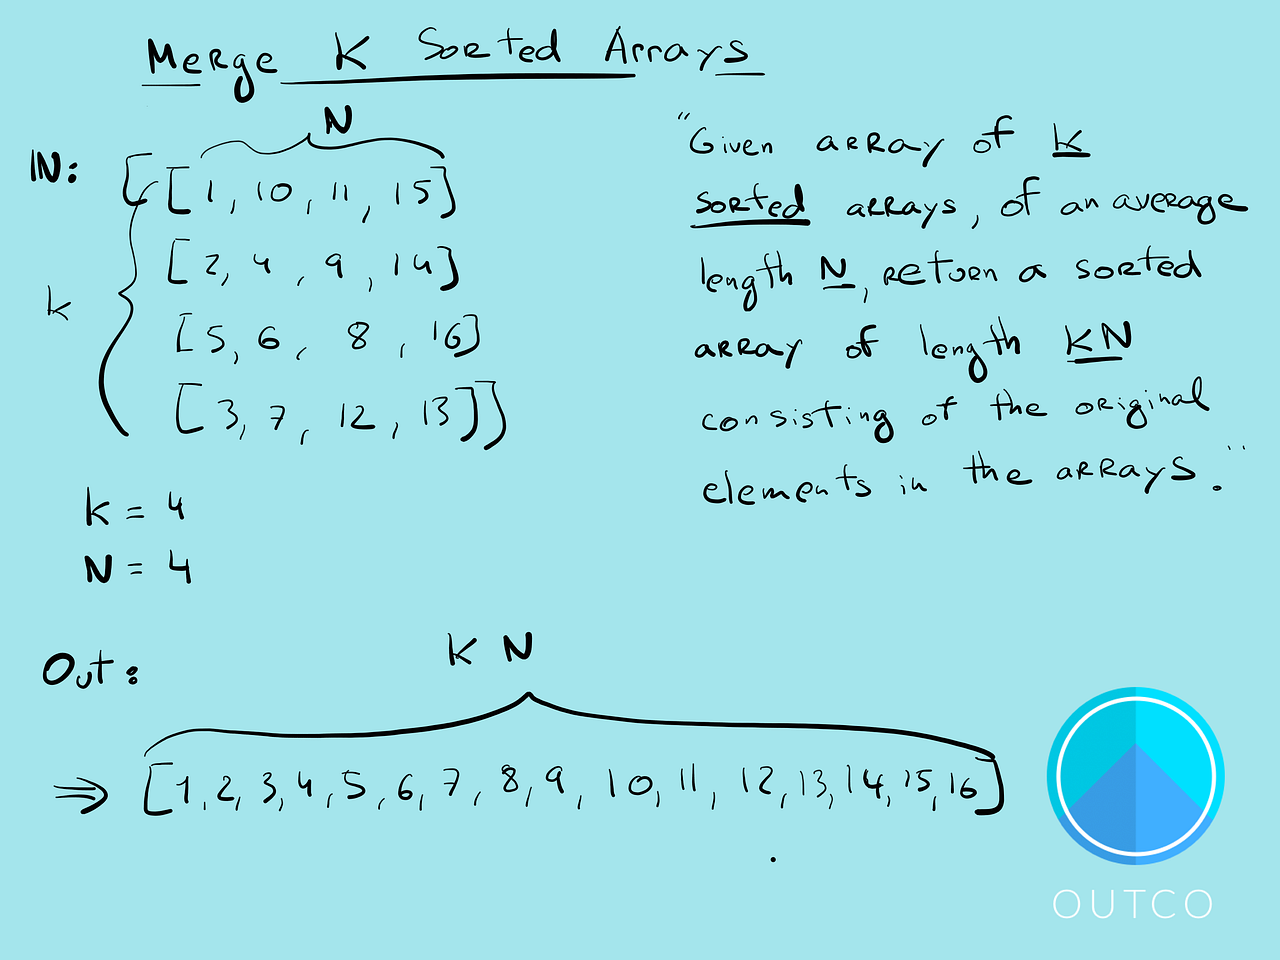 Merge K Sorted Arrays
N
IN: [[1, 10, 11, 15]
[2, 4, 9, 14]
k
[5, 6, 8, 16]
[3, 7, 12, 13]]
k = 4
N = 4
"Given array of k
sorted arrays, of an average
length N, return a sorted
array of length KN
consisting of the original
elements in the arrays."
Out:
K N
⇒ [1, 2, 3, 4, 5, 6, 7, 8, 9, 10, 11, 12, 13, 14, 15, 16]
OUTCO